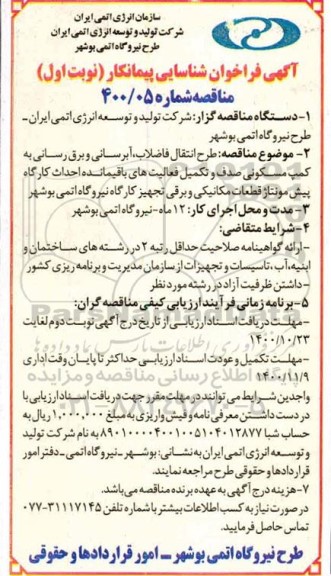 سازمان انرژی اتمی ایران
شرکت تولید و توسعه انرژی اتمی ایران
طرح نیروگاه اتمی بوشهر
آگهی فراخوان شناسایی پیمانکار (نوبت اول)
مناقصه شماره ۴۰۰/۰۵
۱- دستگاه مناقصه گزار: شرکت تولید و توسعه انرژی اتمی ایران ـ
طرح نیروگاه اتمی بوشهر
۲- موضوع مناقصه: طرح انتقال فاضلاب، آبرسانی و برق رسانی به
کمپ مسکونی صدف و تکمیل فعالیت های باقیمانده احداث کارگاه
پیش مونتاژ قطعات مکانیکی و برقی تجهیز کارگاه نیروگاه اتمی بوشهر
۳- مدت و محل اجرای کار: ۱۲ ماه - نیروگاه اتمی بوشهر
۴- شرایط متقاضی:
- ارائه گواهینامه صلاحیت حداقل رتبه ۲ در رشته های ساختمان و
ابنیه، آب، تاسیسات و تجهیزات از سازمان مدیریت و برنامه ریزی کشور
- داشتن ظرفیت آزاد در رشته مورد نظر
۵- برنامه زمانی فرآیند ارزیابی کیفی مناقصه گران:
- مهلت دریافت اسناد ارزیابی از تاریخ درج آگهی نوبت دوم لغایت
۱۴۰۰/۱۰/۲۳
- مهلت تکمیل و عودت اسناد ارزیابی حداکثر تا پایان وقت اداری
۱۴۰۰/۱۱/۹
واجدین شرایط می توانند در مهلت مقرر جهت دریافت اسناد ارزیابی با
در دست داشتن معرفی نامه و فیش واریزی به مبلغ ۱,۰۰۰,۰۰۰ ریال به
حساب شبا به نام شرکت تولید
و توسعه انرژی اتمی ایران به نشانی: بوشهر - نیروگاه اتمی - دفتر امور
قراردادها و حقوقی طرح مراجعه نمایند.
۷- هزینه درج آگهی به عهده برنده مناقصه می باشد.
در صورت نیاز به کسب اطلاعات بیشتر با شماره تلفن ۳۱۱۱۷۱۴۵-۰۷۷
تماس حاصل فرمایید.
طرح نیروگاه اتمی بوشهر ـ امور قراردادها و حقوقی